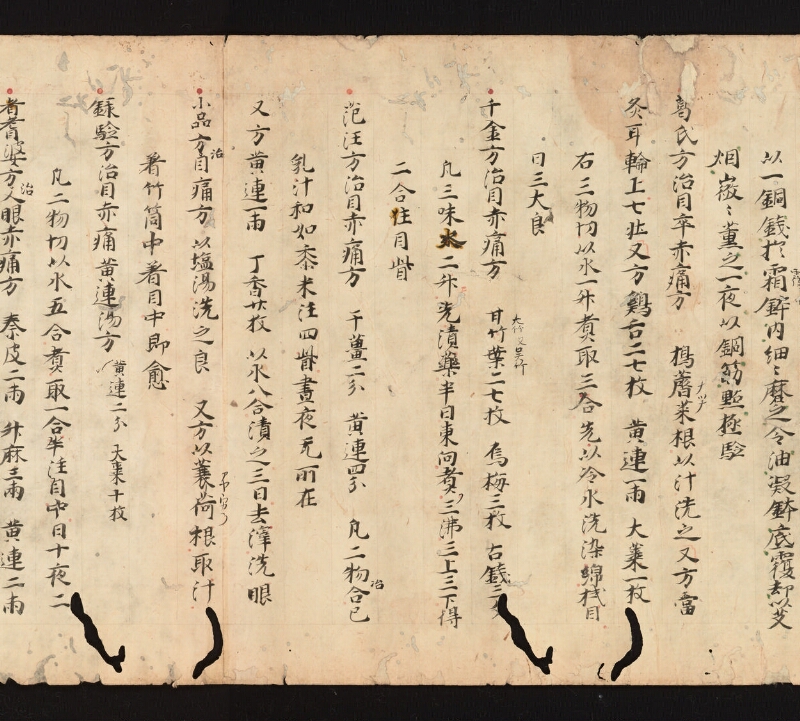 以一銅錢於霜鉢内細〻磨之令油凝鉢底覆却以艾
烟㠑〻薫之一夜以銅筯點極驗
葛氏方治目卒赤痛方 搗薺菜根以汁洗之又方當
灸耳輪上七壮又方鷄舌二七枚 黄連一兩 大棗一枚
右三物切以水一升煮取三合先以冷水洗染綿拭目
日三大良
千金方治目赤痛方 甘竹葉二七枚 烏梅三枚 古錢三文
凡三味水二升先漬藥半日東向煮之三沸三上三下得
二合注目眥
范汪方治目赤痛方 干薑二分 黄連四分 凡二物合已
乳汁和如黍米注四眥晝夜无所在
又方黄連一兩 丁香廿枚 以水八合漬之三日去滓洗眼
小品方治目痛方 以塩湯洗之良 又方以蘘荷根取汁
着竹筒中着目中即愈
録驗方治目赤痛黄連湯方 黄連二分 大棗十枚
凡二物切以水五合煮取一合半注目中日十夜二
耆婆方治人眼赤痛方 秦皮二兩 升麻三兩 黄連二兩